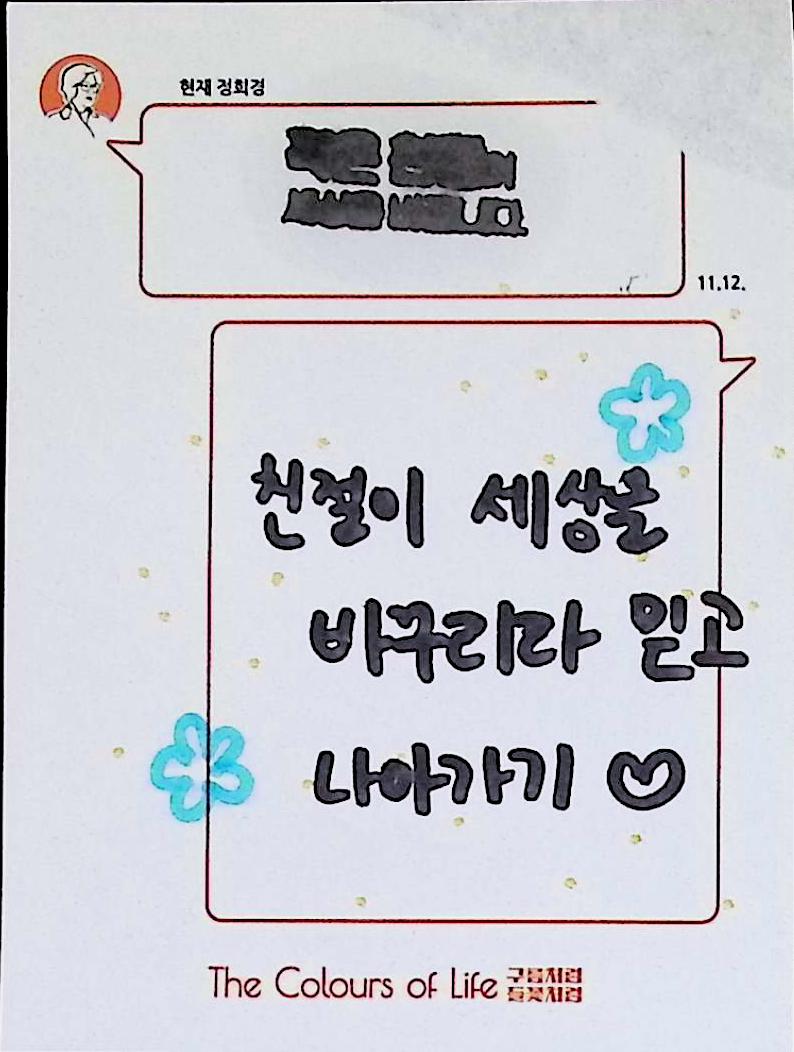 현재 정희경
11.12.
친절이 세상을
바꾸리라 믿고
나아가기
The Colours of Life
구름처럼
들꽃처럼